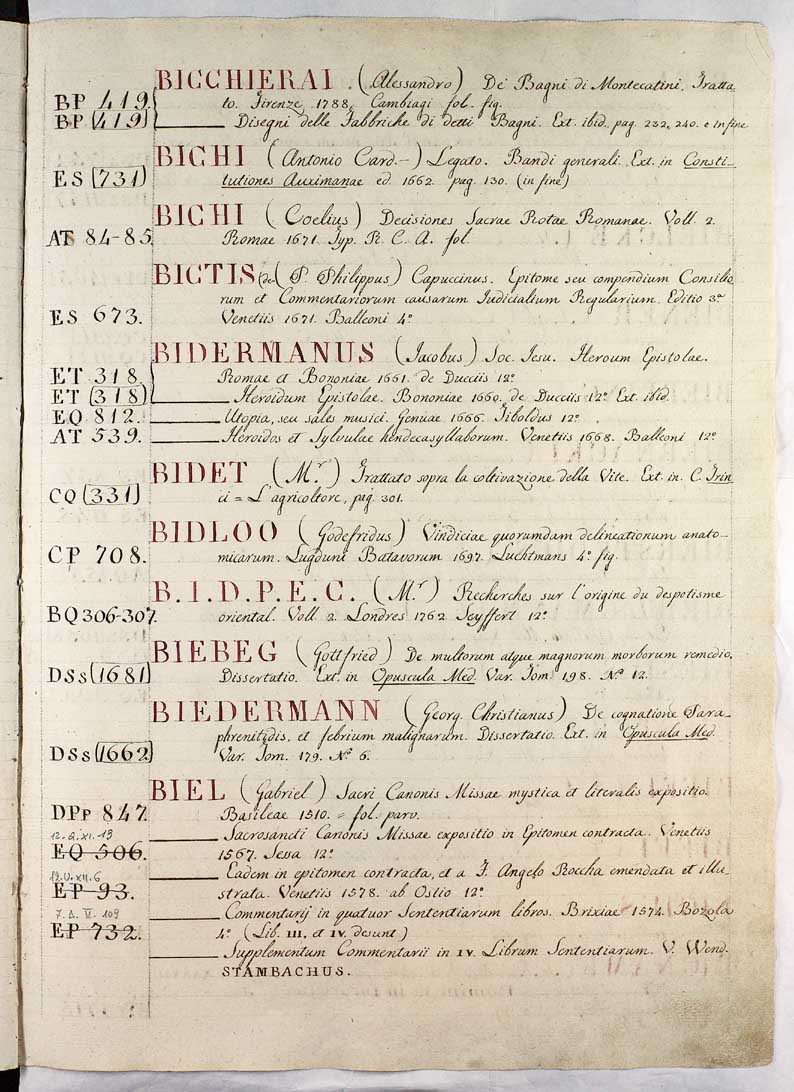 BICCHIERAI . (Alessandro) De' Bagni di Montecatini. Tratta-
BP 419. to. Firenze, 1788, Cambiagi fol. fig.
BP (419) ——— Disegni delle Fabbriche di detti Bagni. Ext. ibid. pag. 232, 240. e in fine
BICHI (Antonio Card.-) Legato. Bandi generali. Ext. in Consti-
ES (731) tutiones Auximanae ed. 1662. pag. 130. (in fine)
BICHI (Coelius) Decisiones Sacrae Rotae Romanae. Voll. 2.
AT 84-85. Romae 1671. Typ. R. C. A. fol.
BICTIS (de-) (P. Philippus) Capuccinus. Epitome seu compendium Consilio
rum et Commentariorum causarum Iudicialium Regularium. Editio 3ª
ES 673. Venetiis 1671. Balleoni 4º
BIDERMANUS (Iacobus) Soc. Iesu. Heroum Epistolae.
ET 318. Romae et Bononiae 1661. de Ducciis 12º
ET (318) ——— Heroidum Epistolae. Bononiae 1660. de Ducciis 12º Ext. ibid.
EQ 812. ——— Utopia, seu sales musici. Genuae 1666. Tiboldus 12º
AT 539. ——— Heroidos et Sylvulae hendecasyllaborum. Venetiis 1668. Balleoni 12º
BIDET (M.r) Trattato sopra la coltivazione della Vite. Ext. in C. Trin
CQ (331) ci = L'agricoltore, pag. 301.
BIDLOO (Godefridus) Vindiciae quorumdam delineationum anato-
CP 708. micarum. Lugduni Batavorum 1697. Luchtmans 4º fig.
B. I. D. P. E. C. (M.r) Recherches sur l'origine du despotisme
BQ 306-307. oriental. Voll. 2. Londres 1762 Seyffert 12º
BIEBEG (Gottfried) De multorum atque magnorum morborum remedio.
DSs (1681) Dissertatio. Ext. in Opuscula Med. Var. Tom. 198. Nº 12.
BIEDERMANN (Georg. Christianus) De cognatione Para-
phrenitidis, et febrium malignarum. Dissertatio. Ext. in Opuscula Med.
DSs (1662) Var. Tom. 179. Nº 6.
BIEL (Gabriel) Sacri Canonis Missae mystica et literalis expositio.
DPp 847. Basileae 1510. = fol. parv.
12. Q. XI. 13 ——— Sacrosancti Canonis Missae expositio in Epitomen contracta. Venetiis
EQ 506. 1567. Sessa 12º
12. U. XII. 6 ——— Eadem in epitomen contracta, et a F. Angelo Roccha emendata et illu-
EP 93. strata. Venetiis 1578. ab Ostio 12º
7. Δ. V. 109 ——— Commentarij in quatuor Sententiarum libros. Brixiae 1574. Bozola
EP 732. 4º (Lib. III. et IV. desunt)
——— Supplementum Commentarii in IV. Librum Sententiarum. V. Wend.
STAMBACHUS.